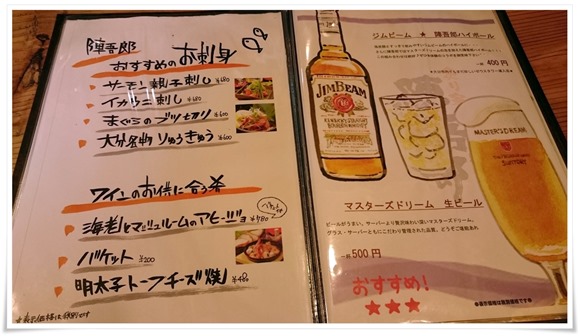 陣吾郎
おすすめのお刺身
サーモン親子刺し ¥680
イカウニ刺し ¥680
まぐろのブツ切り ¥600
大分名物 りゅうきゅう ¥600
ワインのお供に合う肴
海老とマッシュルームのアヒージョ ¥780
バケット ¥200
明太子トーフチーズ焼 ¥480
※表示価格は税別です
ジムビーム ★ 陣吾郎ハイボール
一杯 400円
JIM BEAM
KENTUCKY STRAIGHT
BOURBON WHISKEY
MASTER'S DREAM
SUNTORY
マスターズドリーム 生ビール
ビールがうまい。サーバーより贅沢味わい深いマスターズドリーム。
グラス・サーバーともにこだわり管理された品質。どうぞご堪能あれ
一杯 500円
おすすめ!
★★★
※表示価格は税別価格です※